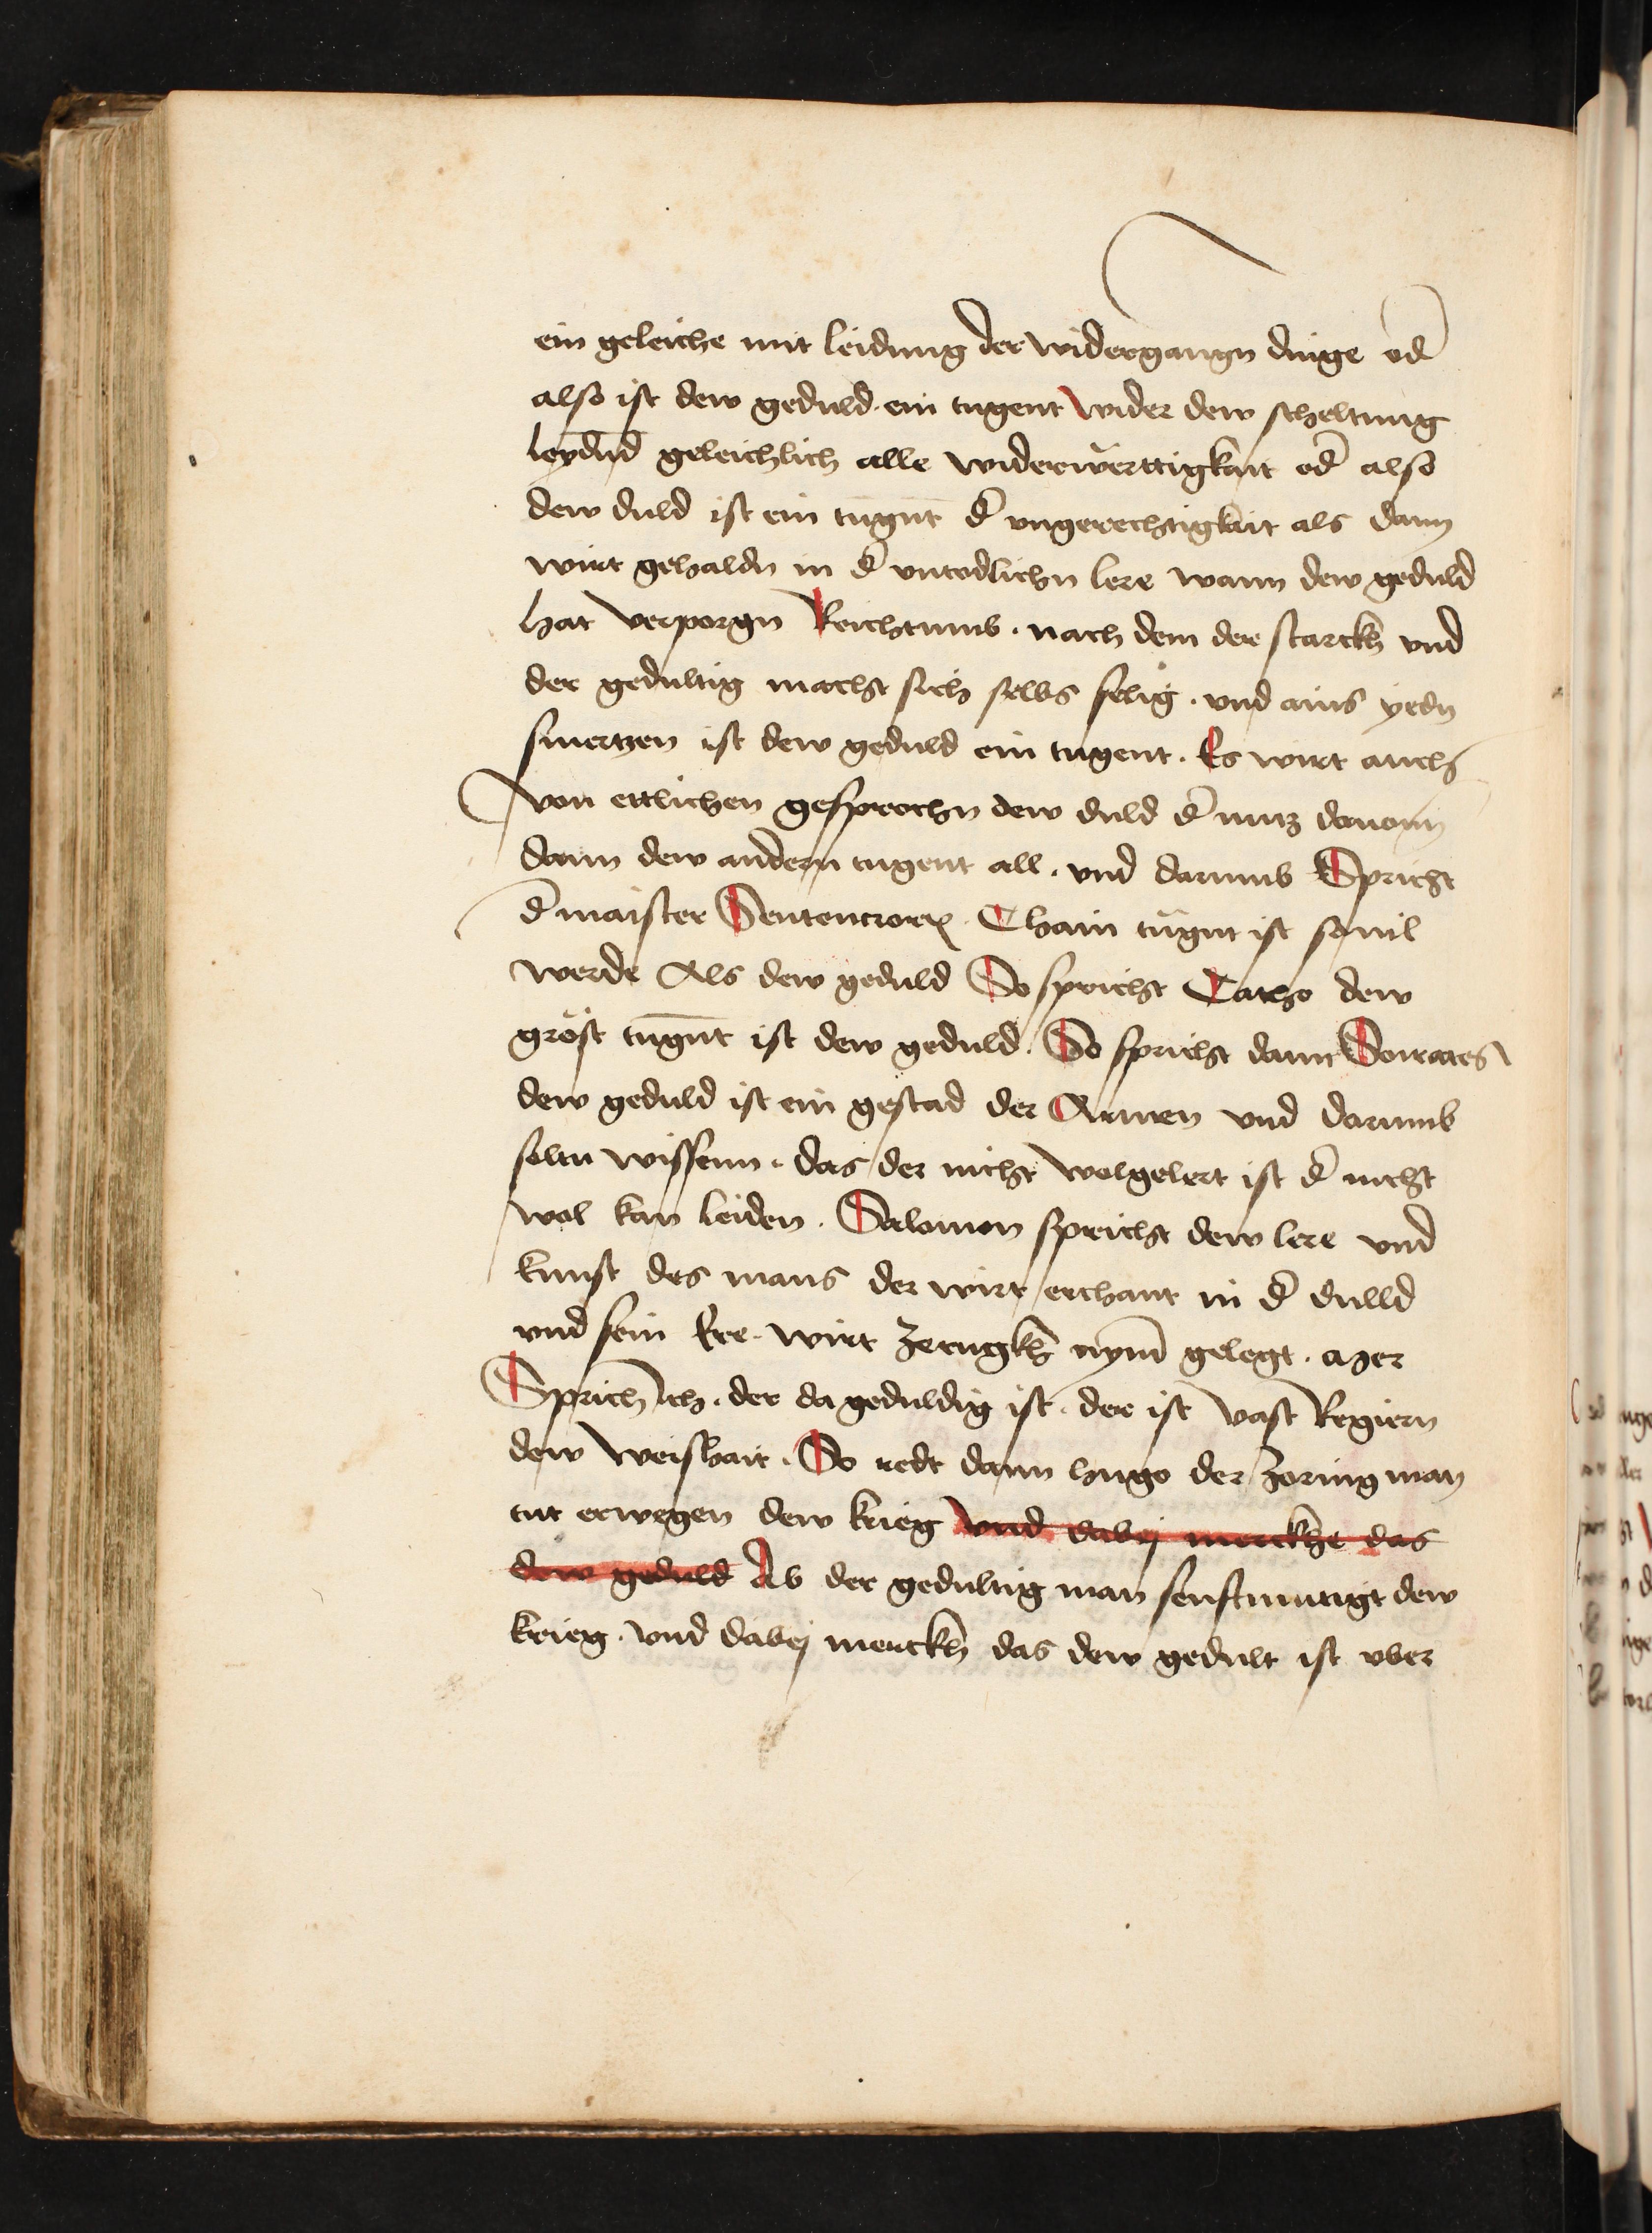 ein geleiche mit leidung der widergangn dinge od̄
also ist dew geduld · ein tugent wider dew scheltung
leydn̄d geleichlich alle widerwërttigkait od̄ also
dew duld ist ein tugn̄t d̄ vngerechtigkait als dann
wirt gehaldn in d̄ vntodlichn lere wann dew geduld
hat verporgn Reichtumb · nach dem der starckh vnd
der gedultig macht sich selbs selig · vnd ains yedn
smertzen ist dew geduld ein tugent · Es wirt auch
von ettlichen gesprochn dew duld d̄ nutz dauonn
dann dew andern tugent all · vnd darumb Spricht
d̄ maister Sentenciorꝝ · Chain tügnt ist souil
werde Als dew geduld So spricht Catho dew
gröst tugn̄t ist dew geduld · So spricht dann Socrates
dew geduld ist ein gestad der Armen vnd darumb
soltu wissenn · das der nicht wolgelert ist d̄ nicht
wol kan leiden · Salomon spricht dew lere vnd
kunst des mans der wirt erchant in d̄ dulld
vnd sein Ere · wirt zerugkh nym̄ gelegt · aber
Sprich ich · der da geduldig ist · der ist vast Regiern
dew weishait · So redt dann hugo der zornig man
tut erwegen dew krieg vnd dabej merckhe das
dew geduld Ab der gedultig man senftmutigt dew
krieg · vnd dabej merckh das dew gedult ist vber